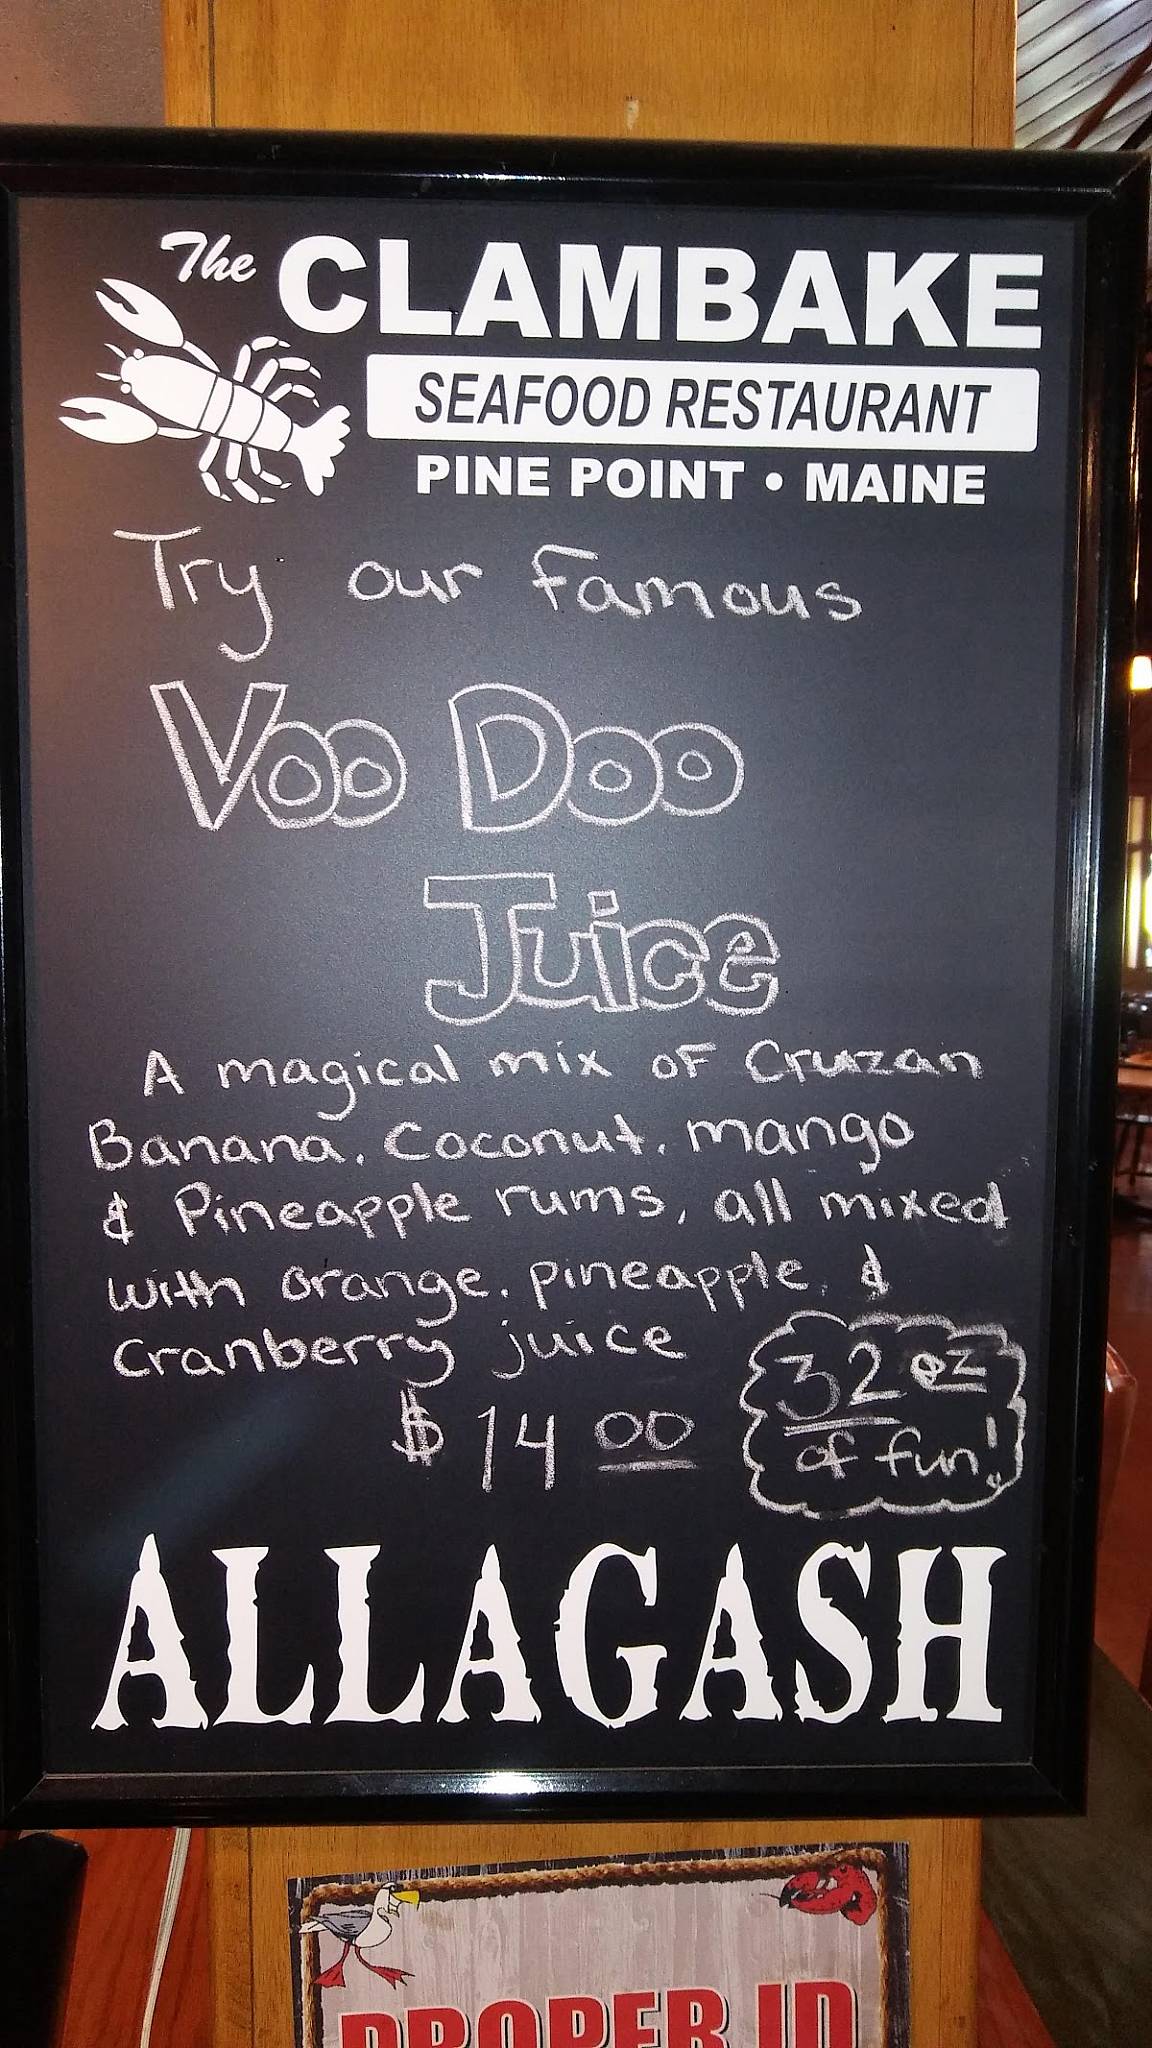 The CLAMBAKE
SEAFOOD RESTAURANT
PINE POINT • MAINE
Try our famous
Voo Doo
Juice
A magical mix of Cruzan
Banana, Coconut, mango
& Pineapple rums, all mixed
with orange, pineapple, &
Cranberry juice
$14 00
32 oz
of fun!
ALLAGASH
PROPER ID